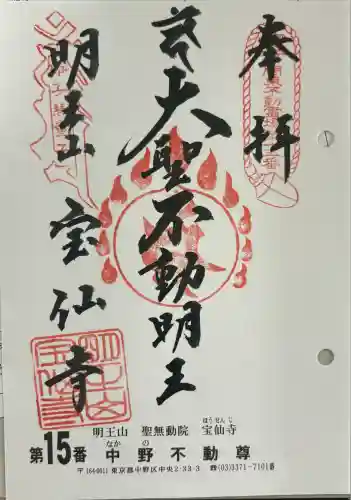 奉拝
大聖不動明王
明王山 宝仙寺
明王山 聖無動院 宝仙寺
ほうせんじ
なかの
第15番 中野不動尊
〒164-0011 東京都中野区中央2-33-3 ☎(03)3371-7101番